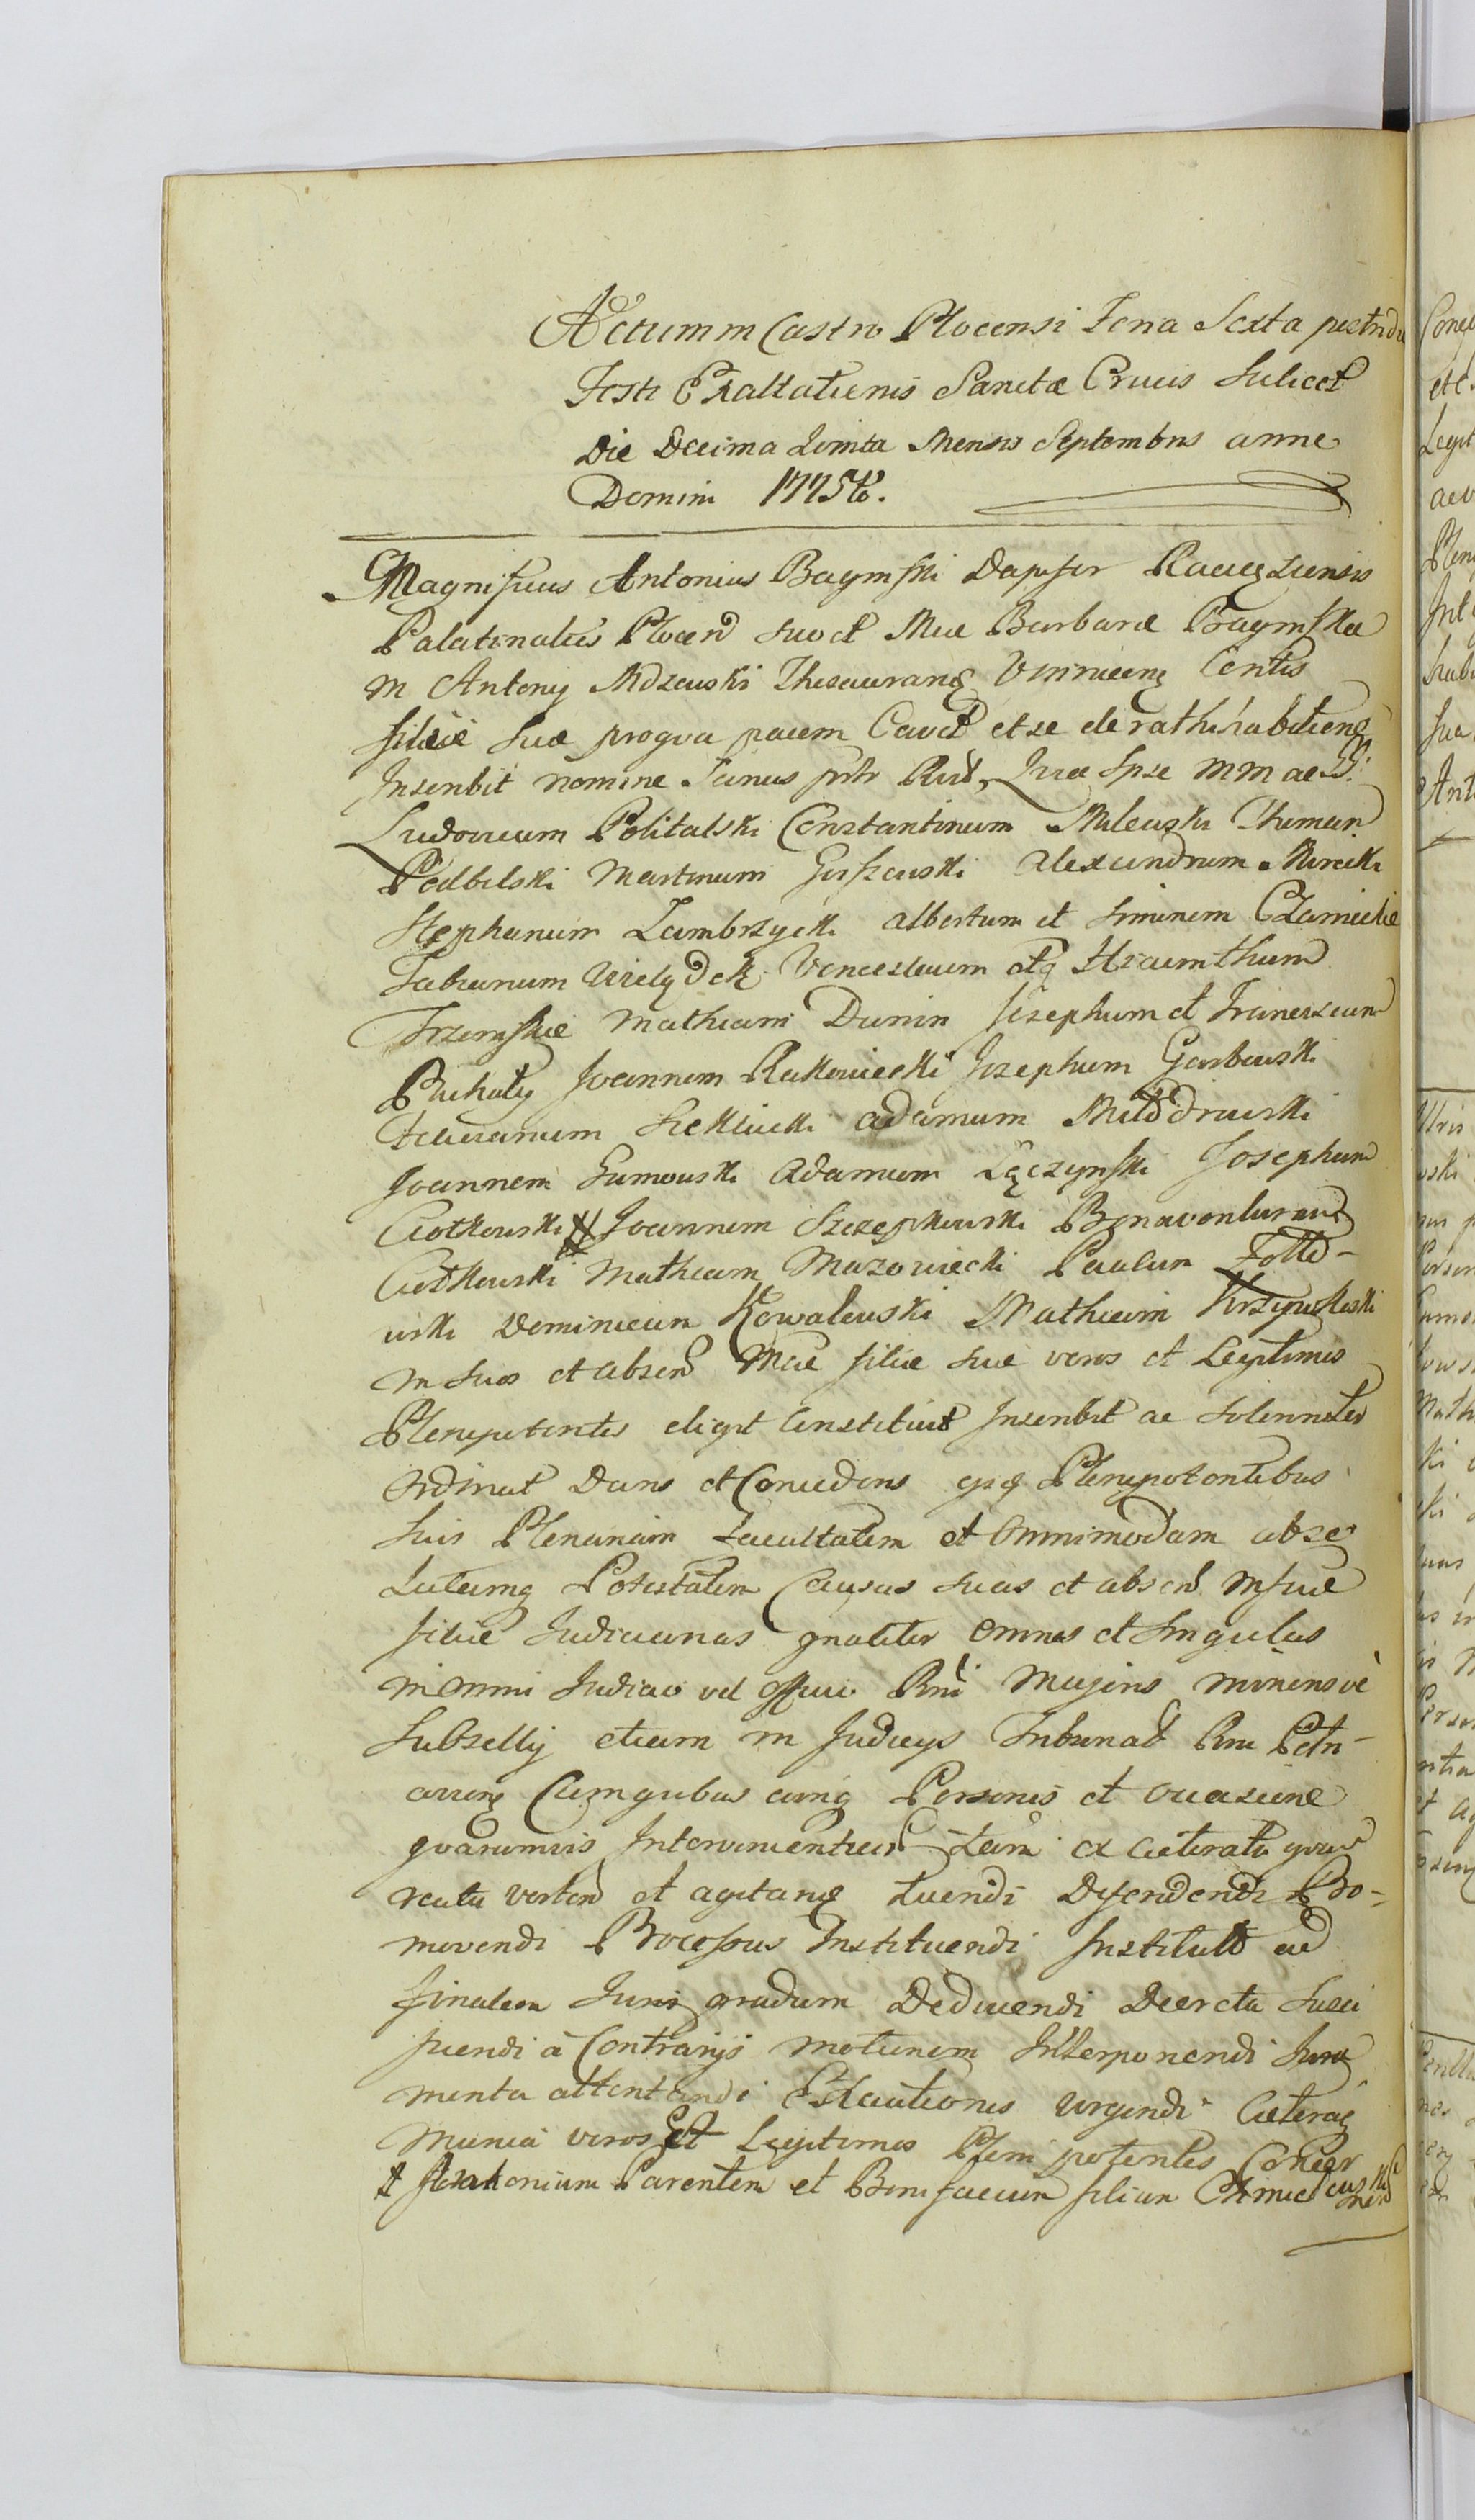 Actum in Castro Plocensi Feria Sexta postridie
Festi Exaltationis Sanctæ Crucis Scilicet
Die Decima Quinta Mensis Septembris anno
Domini 1775to.
Magnificus Antonius Bagiński Dapifer Raciążiensis
Palatinatus Plocen suo et Mcæ Barbaræ Bagińska
m Antonij Mdzewski Thesaurarii Winnicens Contis
filiæ suæ pro qva pacem Cavet et se de rathihabitione
Inscribit nomine Ipse MM ac GG
Ludovicum Politalski Constantinum Milewski Thomam
Podbilski Martinum Goszewski Alexandrum Mirecki
Stephanum Zambrzycki Albertum et Siminem Czarnickie
Fabianum Wielądek Venceslaum atq Hyacinthum
Trzemskie Mathiam Dunin Josephum et Franciscum
Puchały Joannem Rakowiecki Josephum Garbowski
Felicianum adamum Młodzdrowski
Joannem Gumowski Adamum Łączynski Josephum
Ciotkowski # Joannem Szczepkowski Bonaventuram
Ciotkowski Mathiam Mazowiecki Paulum Zołto-
wski Dominicum Kowalewski Mathiam Krzynkoski
in suos et absen Mcæ filiæ suæ veros et Legitimos
Plenipotentes eligit Constituit Inscribit ac Solenniter
Ordinat Dans et Concedens ijsq Plenipotentibus
suis Plenariam Facultatem et Omnimodam abso
Lutamq Potestatem Causas suas et absen Mcæ suæ
filiæ Judiciarias gnaliter Omnes et Singulas
in Omni Judicio vel officio Rni Majoris minorisvè
Subsellij etiam in Judicijs Tribunal Rni Petri-
coviens Cum qvibus cunq Personis et occasione
qvarumvis Intervenientium Tam ex Citeratu quam
reatu verten et agitan Tuendi Defendendi Pro-
movendi Processus Instituendi Institutos ad
finalem Juris gradum Deducendi Decreta Susci
piendi à Contrarijs motionem Interponendi Jura
menta attentandi Exæcutiones Urgendi Cæteraq
Munia veros Et Legitimos Plenipotentes Concer
# Antonium Parentem et Bonifacium filium nen